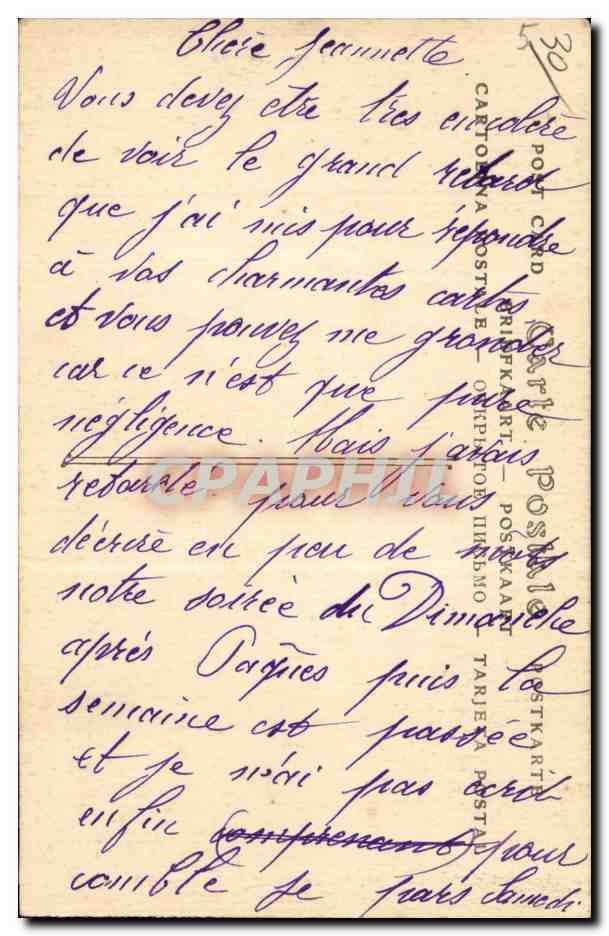 Chère Jeannette
Vous devez être très
de voir le grand retard
que j'ai mis pour répondre
à vos charmantes cartes
et vous pouvez me gronder
car ce n'est que pure
négligence. Mais j'avais
retardé pour vous
décrire en peu de mots
notre soirée du Dimanche
après Pâques puis la
semaine est passée
et je n'ai pas écrit
enfin (comprenant) pour
comble je pars Samedi
5 30
POST CARD
Carte Postale
POSTKARTE
BRIEFKAART — POSTKAART
CARTOLINA POSTALE — ОТКРЫТОЕ ПИСЬМО — TARJETA POSTAL
CPAPHIL